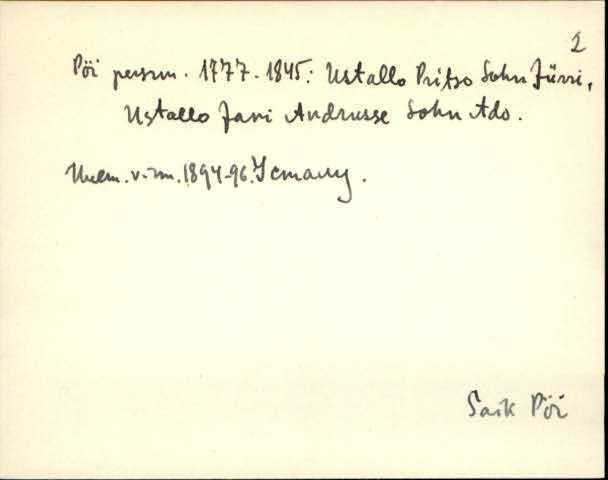 2
Pöi persrm. 1777-1845: Ustallo Pritso Sohn Jürri,
Ustallo Jani Andrusse Sohn Ado.
v-rm. 1894-96.
Saik Pöi